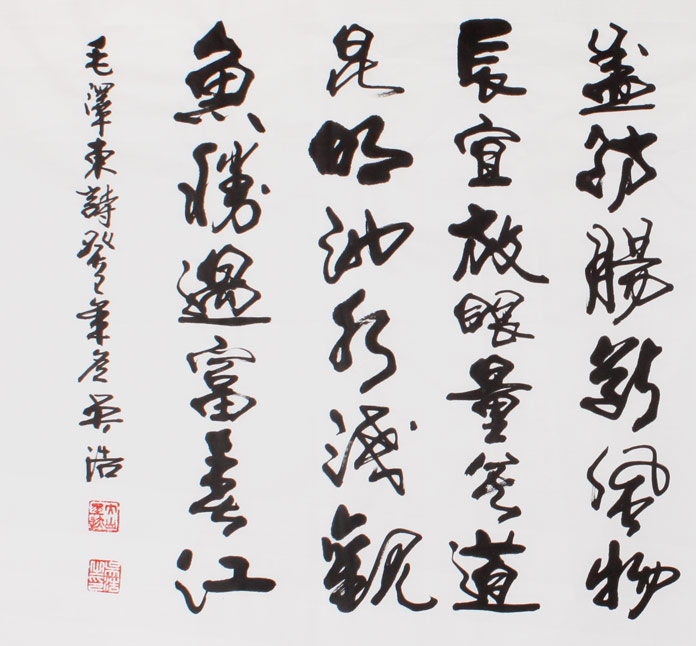 盛防腸斷風物
長宜放眼量莫道
昆明池水淺觀
魚勝過富春江
毛澤東詩癸巳年吳浩